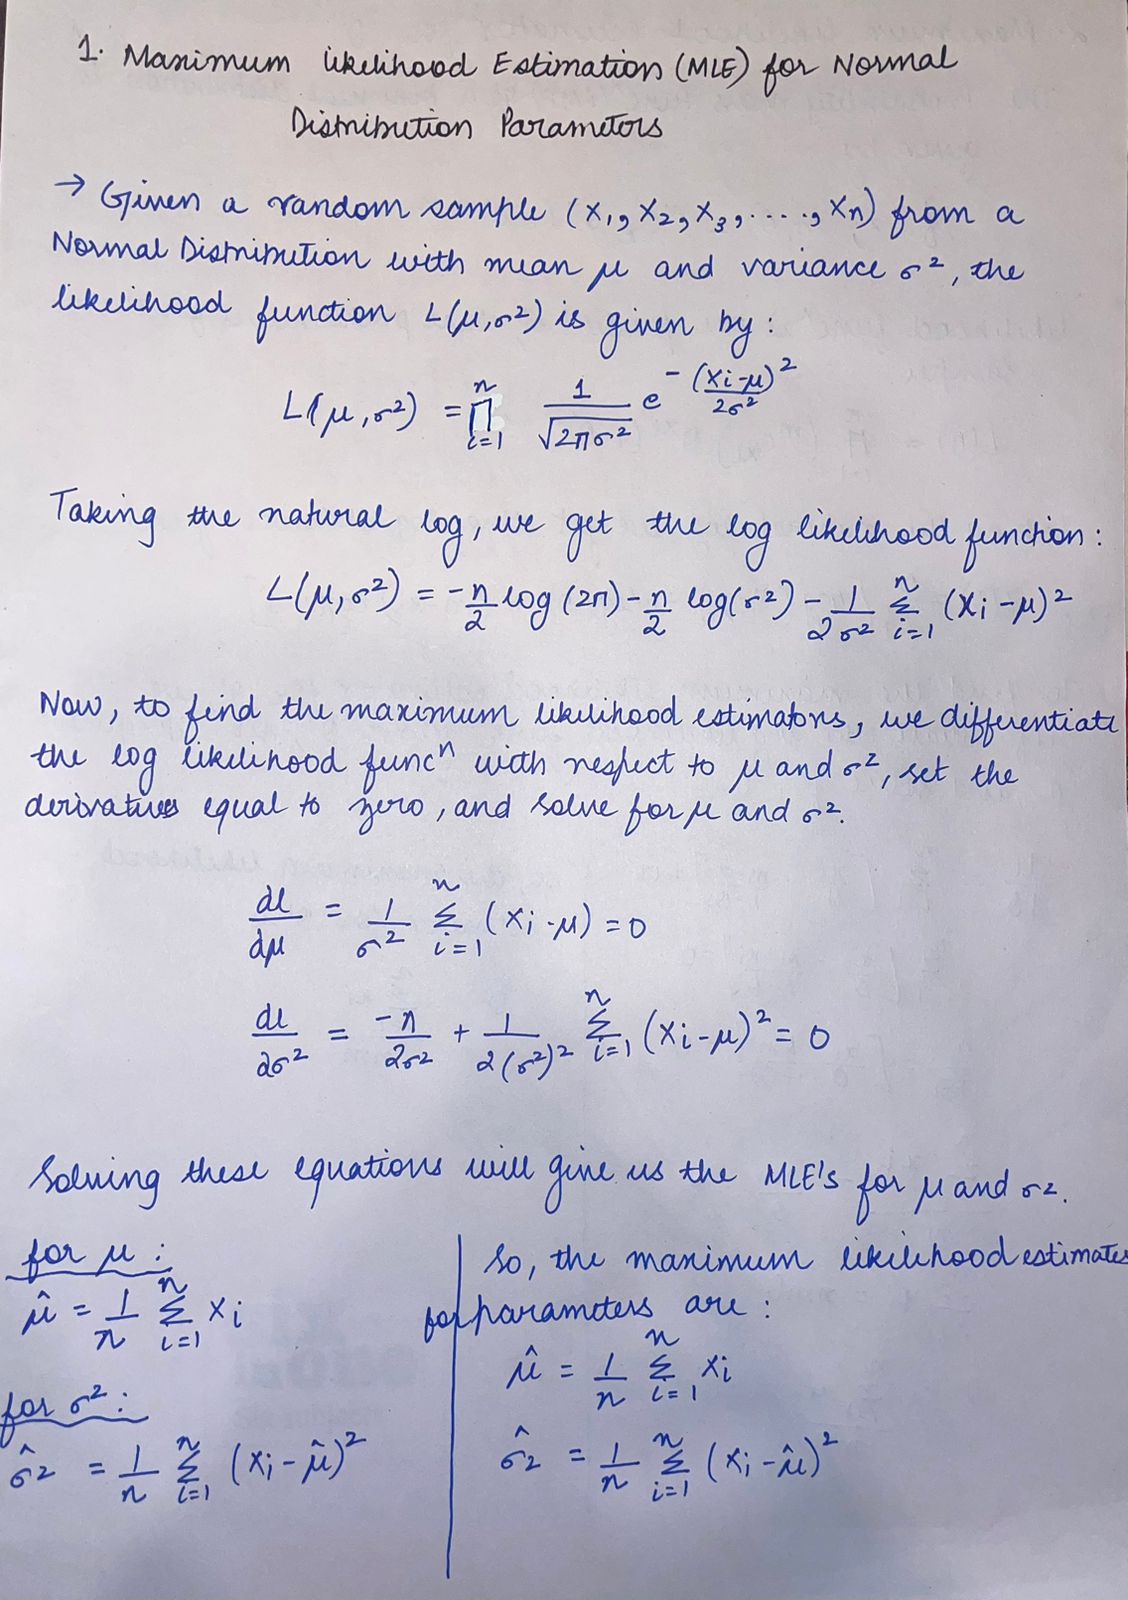 1. Maximum likelihood Estimation (MLE) for Normal
Distribution Parameters
→ Given a random sample (x₁, x₂, x₃, ...., xₙ) from a
Normal Distribution with mean μ and variance σ², the
likelihood function L(μ,σ²) is given by:
L(μ,σ²) = ∏ᵢ₌₁ⁿ 1/√(2πσ²) e^(-(xᵢ-μ)²/2σ²)
Taking the natural log, we get the log likelihood function:
L(μ,σ²) = -n/2 log(2π) - n/2 log(σ²) - 1/2σ² Σᵢ₌₁ⁿ (xᵢ-μ)²
Now, to find the maximum likelihood estimators, we differentiate
the log likelihood funcⁿ with respect to μ and σ², set the
derivatives equal to zero, and solve for μ and σ².
dl/dμ = 1/σ² Σᵢ₌₁ⁿ (xᵢ-μ) = 0
dl/2σ² = -n/2σ² + 1/2(σ²)² Σᵢ₌₁ⁿ (xᵢ-μ)² = 0
Solving these equations will give us the MLE's for μ and σ2.
for μ:
μ̂ = 1/n Σᵢ₌₁ⁿ xᵢ
for σ²:
σ̂2 = 1/n Σᵢ₌₁ⁿ (xᵢ-μ̂)²
So, the maximum likelihood estimates
for parameters are:
μ̂ = 1/n Σᵢ₌₁ⁿ xᵢ
σ̂2 = 1/n Σᵢ₌₁ⁿ (xᵢ-μ̂)²